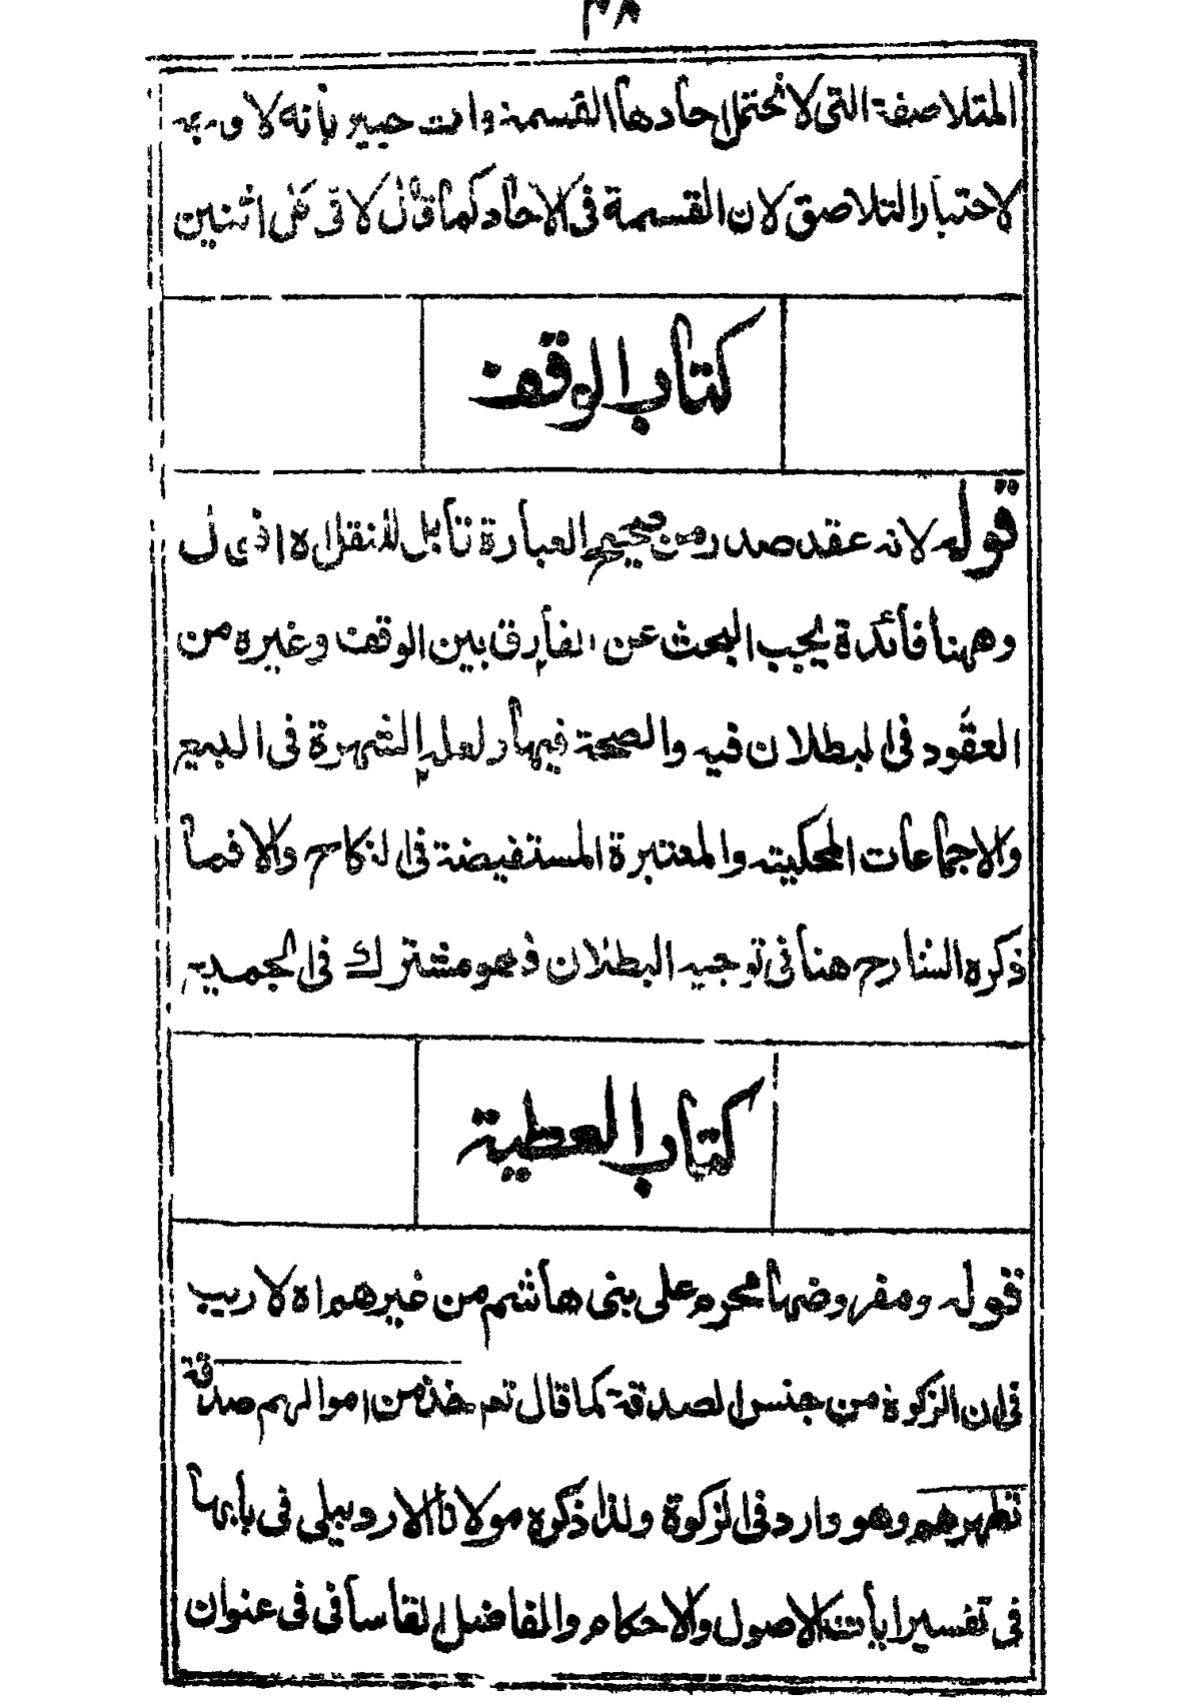 ٣٨
المتلاصقة التى لا تحتمل احادها القسمة وانت خبير بأنه لا وجه
لاختبار التلاصق لان القسمة فى الاحاد كما قال لا فى كل اثنين
كتاب الوقف
قوله لانه عقد صدر من صحيح العبارة قابل للنقل اه اذى ل
وههنا فائدة يجب البحث عن الفارق بين الوقف وغيره من
العقود فى البطلان فيه والصحة فيها ولعله الشهرة فى البيع
والاجماعات المحكية والمعتبرة المستفيضة فى النكاح والا فما
ذكره الشارح هنا فى توجيه البطلان فهو مشترك فى الجميع
كتاب العطية
قوله ومفروضها محرم على بنى هاشم من غيرهم اه لا ريب
فى ان الزكوة من جنس الصدقة كما قال تعم خذ من اموالهم صدقة
تطهرهم وهو وارد فى الزكوة ولذا ذكره مولانا الاردبيلى فى بابها
فى تفسير ايات الاصول والاحكام والفاضل القاسانى فى عنوان